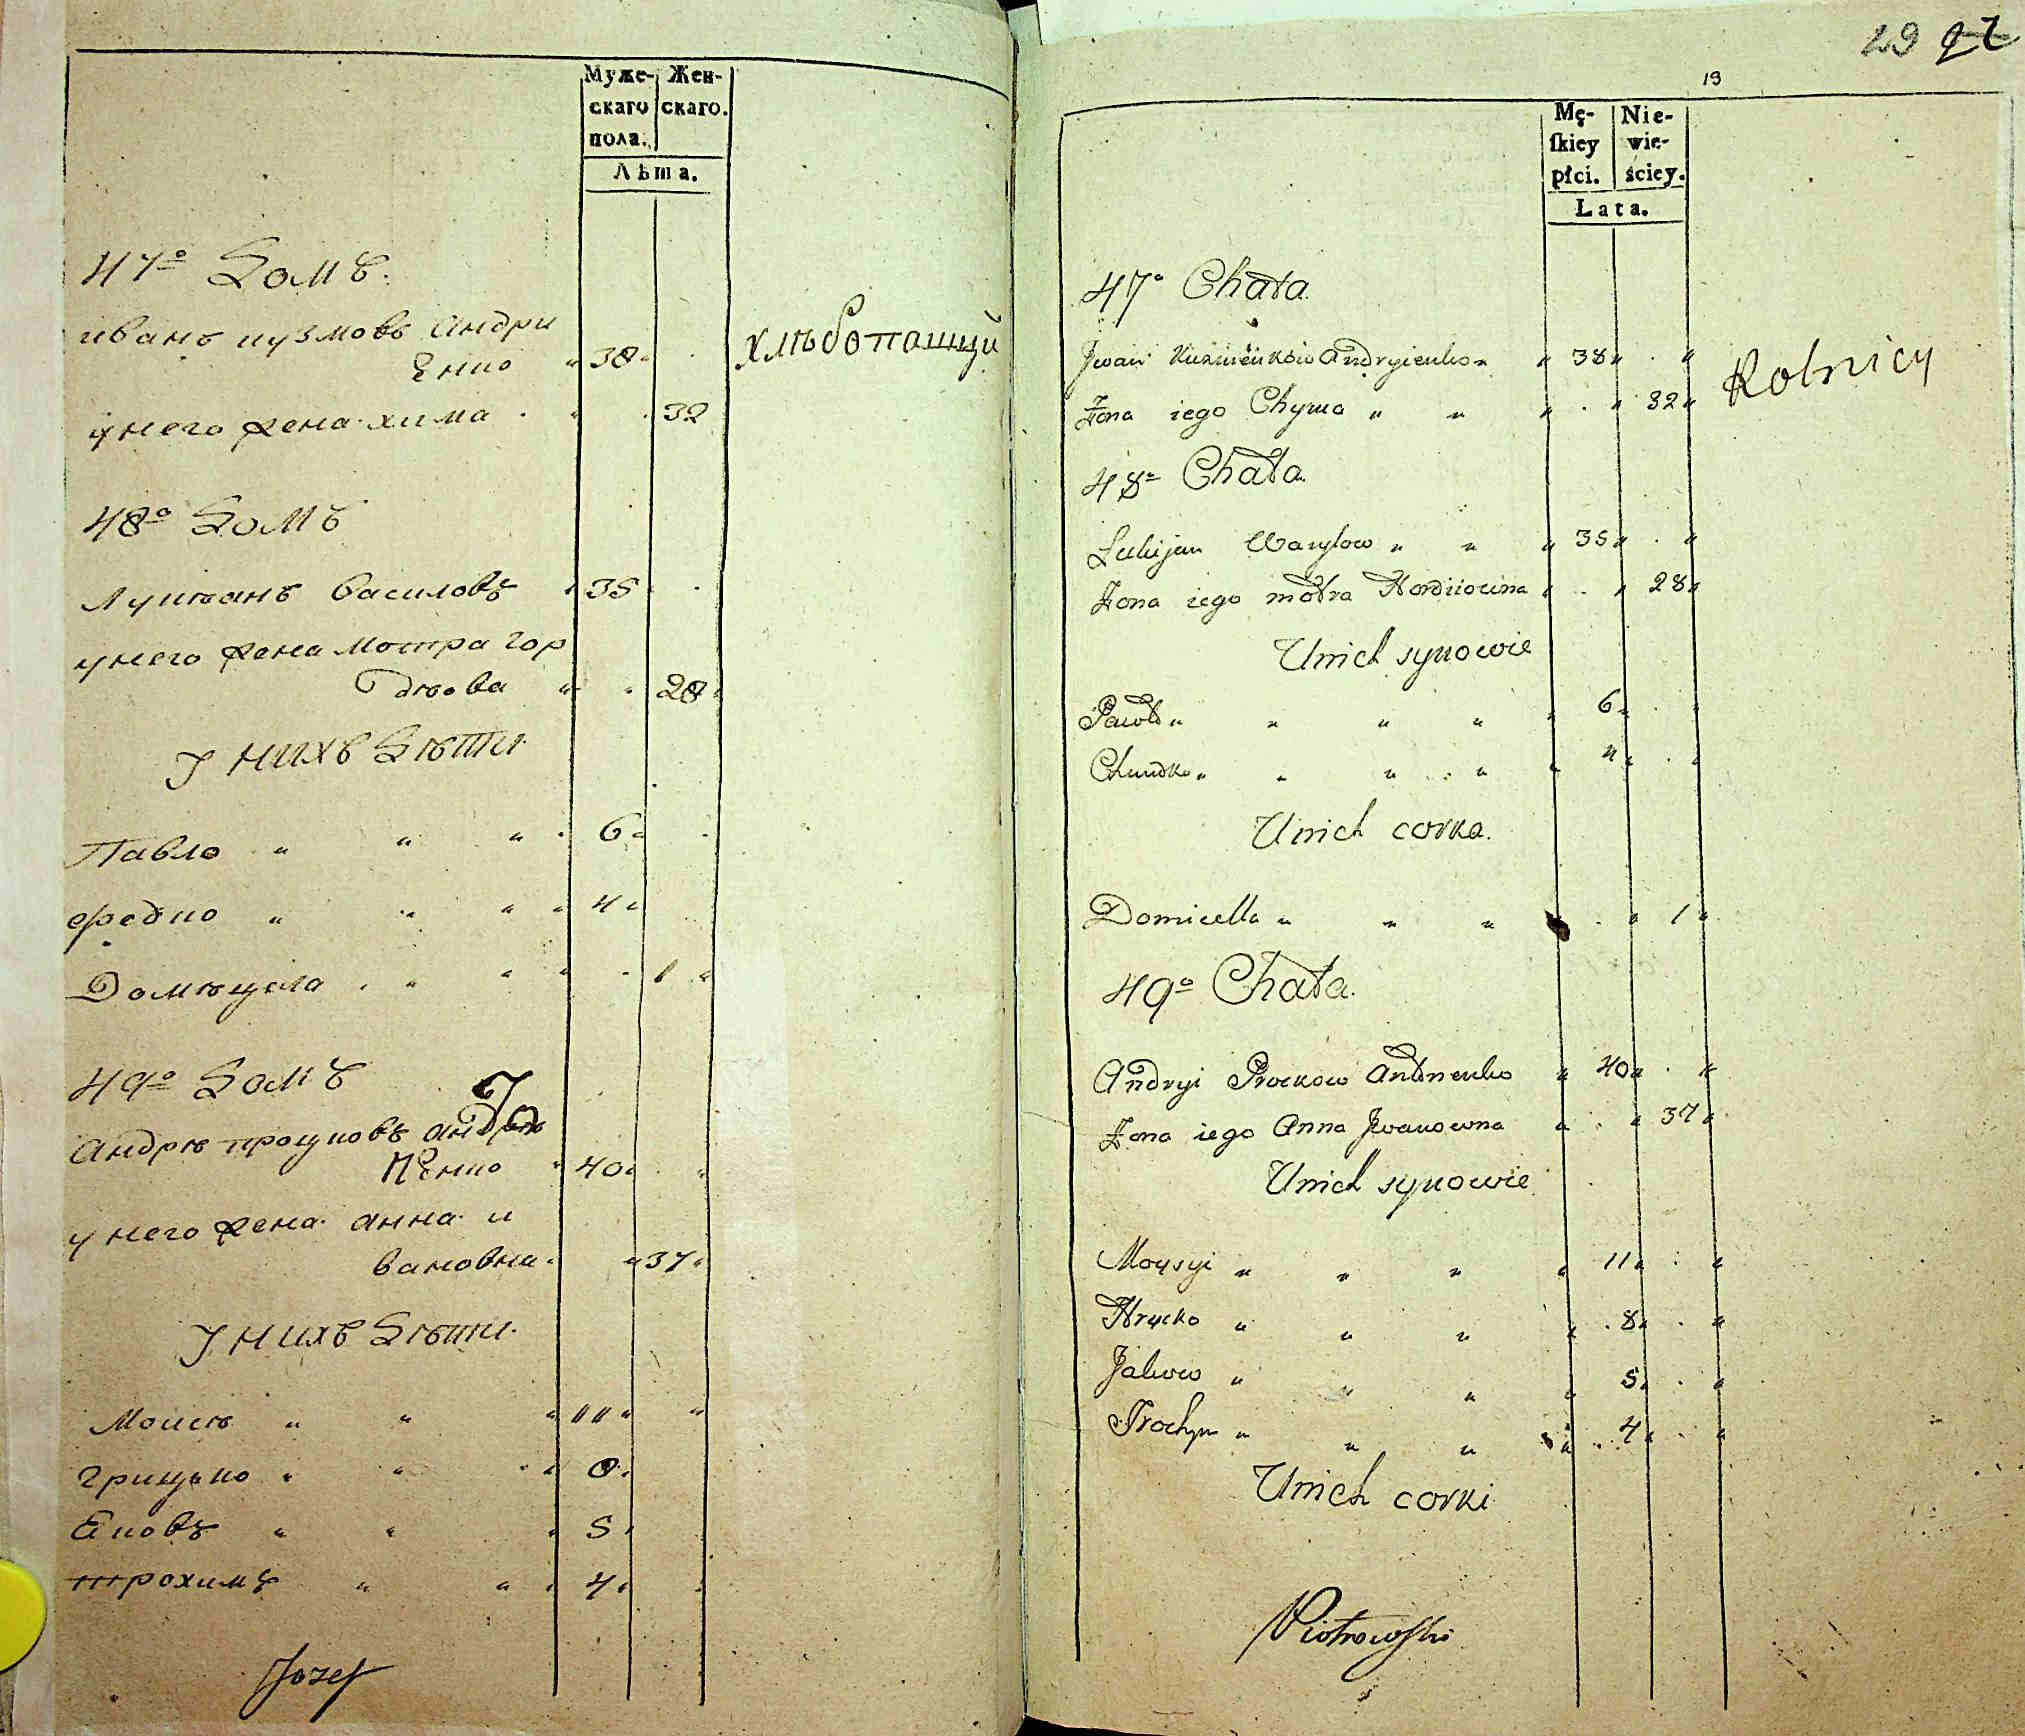 Муже- Жен-
скаго скаго.
пола.
Лѣта.
47º Домъ.
иванъ кузмовъ Андри
Енко " 38 "
унего жена хима " 32
хлѣбопашцы
48º Домъ
Лукианъ василовъ " 35 "
унего жена Мотра гор
Дѣова " 28 "
У нихъ Дѣти
Павло " " " 6 "
Федко " " " 4 "
Домѣцела " " " 1 "
49º Домъ
Андрѣ процковъ
Енко " 40 "
у него жена анна и
вановна " 37 "
У нихъ Дѣти
Моисѣ " " " 11 " "
грицко " " " 8 "
Яковъ " " " 5 "
трохимъ " " " 4 "
Jozef
29
19
Mę- Nie-
ſkiey wie-
płci. ściey.
Lata.
47º Chata.
Jwan Kuzmienkow Andryienko " " 38 " "
Żona iego Chyma " " " " 32 "
Rolnicy
48º Chata.
Lukijan Wasylow " " " 35 " "
Żona iego motra Hordiiowna " " 28 "
Unich synowie
Pawło " " " " " 6 "
Chwedko " " " " " 4 "
Unich corka.
Domicella " " " " " 1 "
49º Chata.
Andryi Prockow Antonenko " 40 " "
Żona iego Anna Jwanowna " " 37 "
Unich synowie
Moysyi " " " " 11 " "
Hrycko " " " " 8 " "
Jakow " " " " 5 " "
Trochym " " " " 4 " "
Unich corki
Piotrowſki